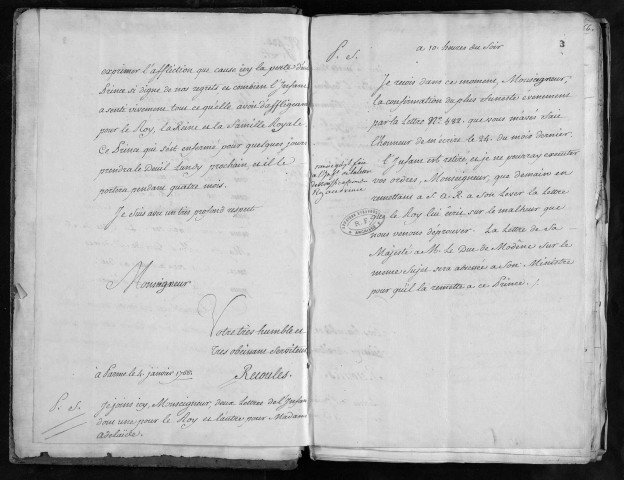 exprimer l'affliction que cause icy la perte d'un
Prince si digne de nos regrets et combien l'Infant
a senti vivement tout ce qu'elle avoit d'affligeant
pour le Roy, la Reine et la Famille Royale.
Ce Prince qui s'est enfermé pour quelques jours
prendra le Deuil Lundy prochain, et il le
portera pendant quatre mois.
Je suis avec un très profond respect
Monseigneur
Votre très humble et
très obéissant Serviteur
Recoules.
à Parme le 4. janvier 1766.
P. S. Je joins icy, Monseigneur, deux Lettres de l'Infant
dont une pour le Roy et l'autre pour Madame
adelaide.
3
P. S. a 10 heures du Soir
Je reçois dans ce moment, Monseigneur,
la confirmation du plus funeste évenement
par la Lettre N.° 582. que vous m'avez fait
l'honneur de m'écrire le 24. du mois dernier.
L'Infant est retiré, et je ne pourray executer
vos ordres, Monseigneur, que demain en
remettant a S. A. R. a son Lever la Lettre
que le Roy lui écrit sur le malheur que
nous venons d'éprouver. La Lettre de Sa
Majesté a M. le Duc de Modène sur le
meme Sujet sera adressée a son Ministre
pour qu'il la remette a ce Prince ./.
R. F.